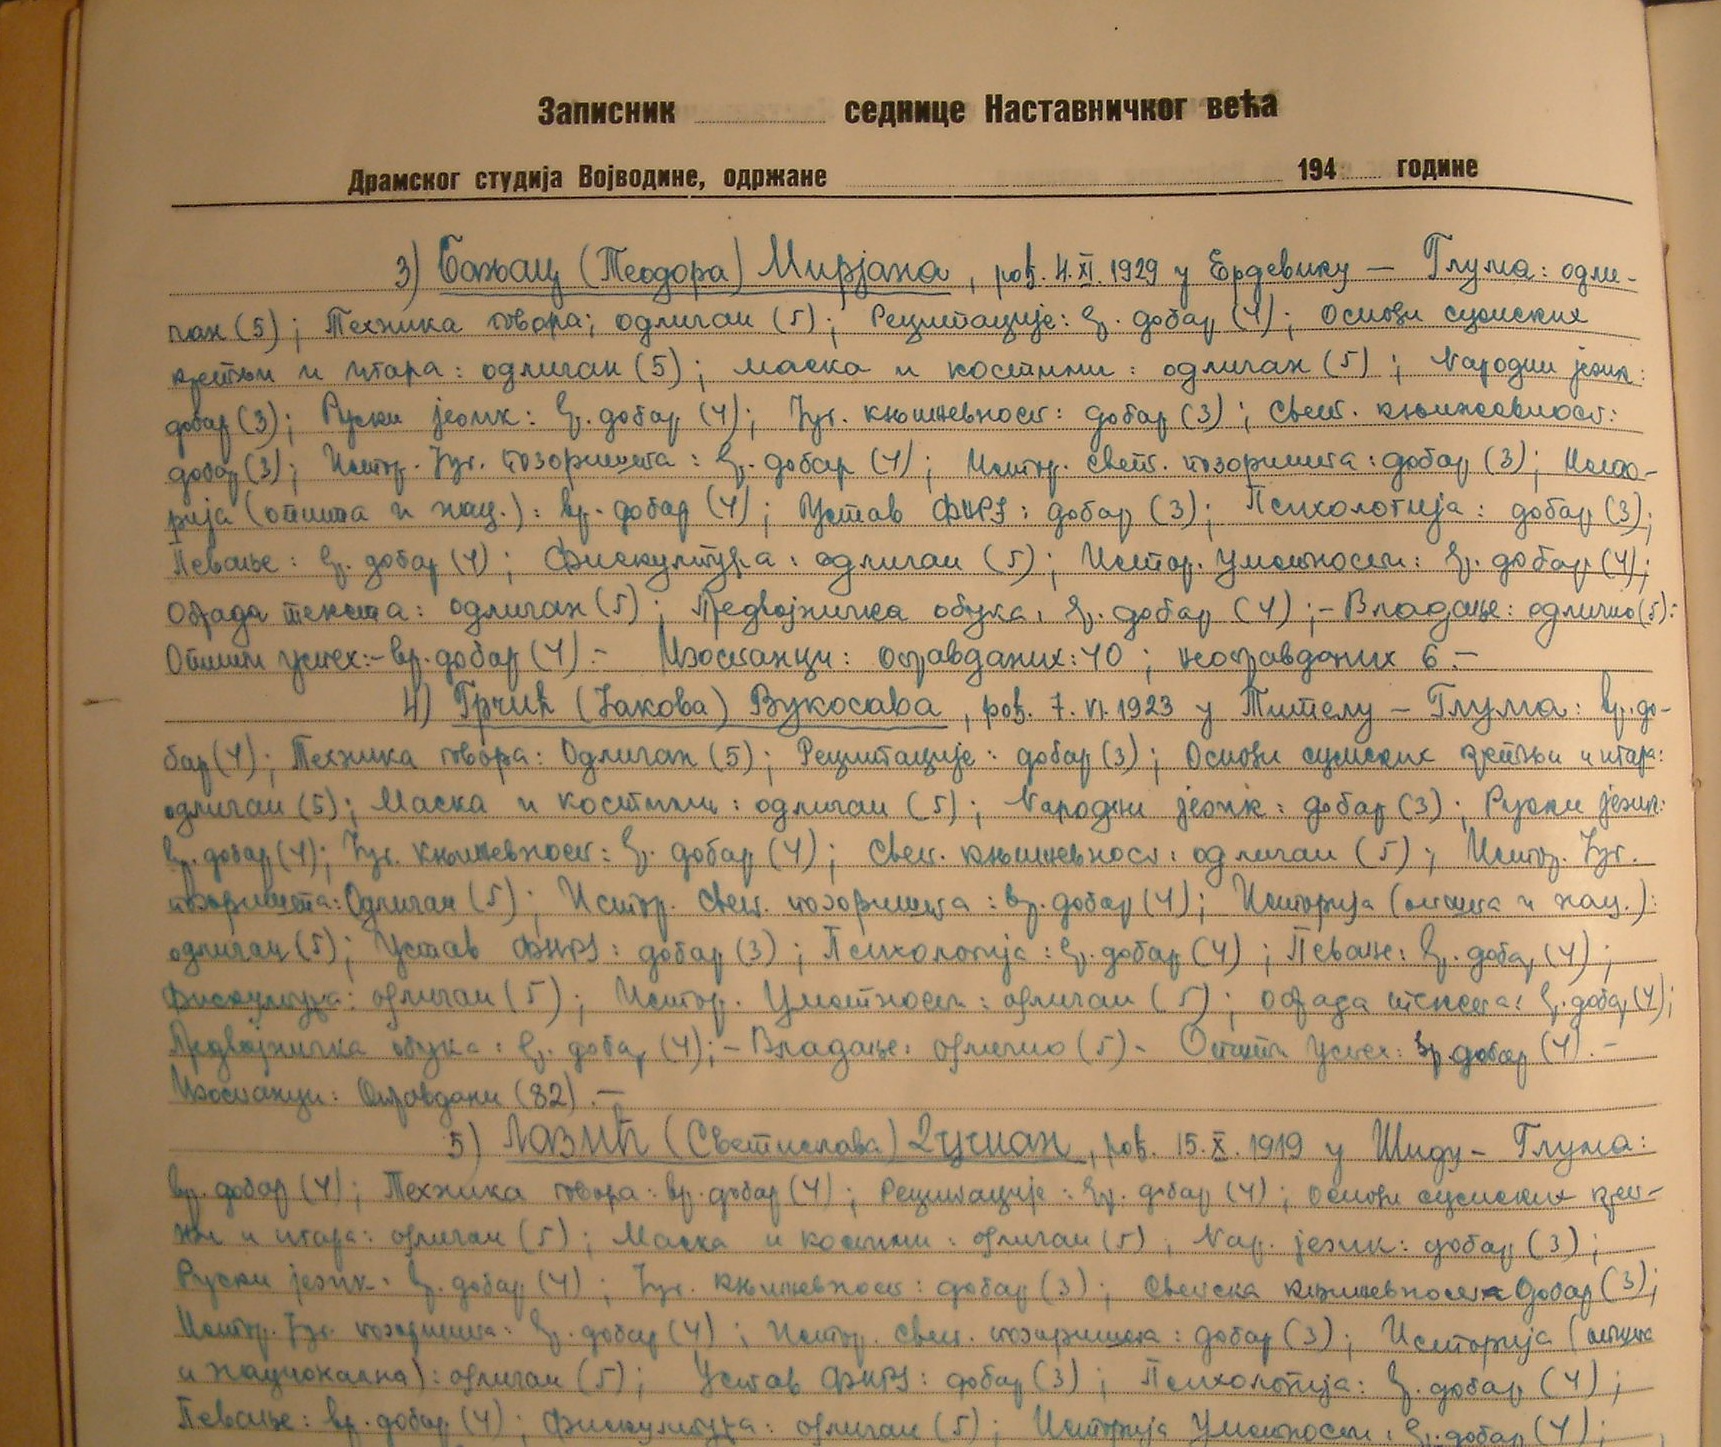 Записник седнице Наставничког већа
Драмског студија Војводине, одржане 194 године
3) Бањац (Теодора) Мирјана, рођ. 4. XI. 1929 у Ердевику — Глума: одли-
чан (5); Техника говора; одличан (5); Рецитације: вр. добар (4); Основи сценских
кретњи и игара: одличан (5); маска и костими: одличан (5); Народни језик:
добар (3); Руски језик: вр. добар (4); Југ. књижевност: добар (3); Свет. књижевност:
добар (3); Истор. Југ. позоришта: вр. добар (4); Истор. свет. позоришта: добар (3); Исто-
рија (општа и нац.): вр. добар (4); Устав ФНРЈ: добар (3); Психологија: добар (3);
Певање: вр. добар (4); Фискултура: одличан (5); Истор. Уметности: вр. добар (4);
Обрада текста: одличан (5); Предвојничка обука: вр. добар (4); — Владање: одлично (5):
Општи успех: — вр. добар (4). — Изостанци: оправданих: 40; неоправданих 6. —
4) Грчић (Јакова) Вукосава, рођ. 7. VI. 1923 у Тителу — Глума: вр. до-
бар (4); Техника говора: Одличан (5); Рецитације: добар (3); Основи сценских кретњи и игара:
одличан (5); Маска и костими: одличан (5); Народни језик: добар (3); Руски језик:
вр. добар (4); Југ. књижевност: вр. добар (4); Свет. књижевност: одличан (5); Истор. Југ.
позоришта: Одличан (5); Истор. Свет. позоришта: вр. добар (4); Историја (општа и нац.):
одличан (5); Устав ФНРЈ: добар (3); Психологија: вр. добар (4); Певање: вр. добар (4);
Фискултура: одличан (5); Истор. Уметности: одличан (5); обрада текста: вр. добар (4);
Предвојничка обука: вр. добар (4); — Владање: одлично (5) - Општи Успех: вр. добар (4). —
Изостанци: Оправдани (82). —
5) Лазић (Светислава) Душан, рођ. 15. X. 1919 у Шиду — Глума:
вр. добар (4); Техника говора: вр. добар (4); Рецитације: вр. добар (4); основи сценских крет-
њи и игара: одличан (5); Маска и костими: одличан (5); Нар. језик: добар (3);
Руски језик: вр. добар (4); Југ. књижевност: добар (3); Светска књижевност Добар (3);
Истор. Југ. позоришта: вр. добар (4); Истор. свет. позоришта: добар (3); Историја (општа
и национална): одличан (5); Устав ФНРЈ: добар (3); Психологија: вр. добар (4);
Певање: вр. добар (4); Фискултура: одличан (5); Историја Уметности: вр. добар (4);